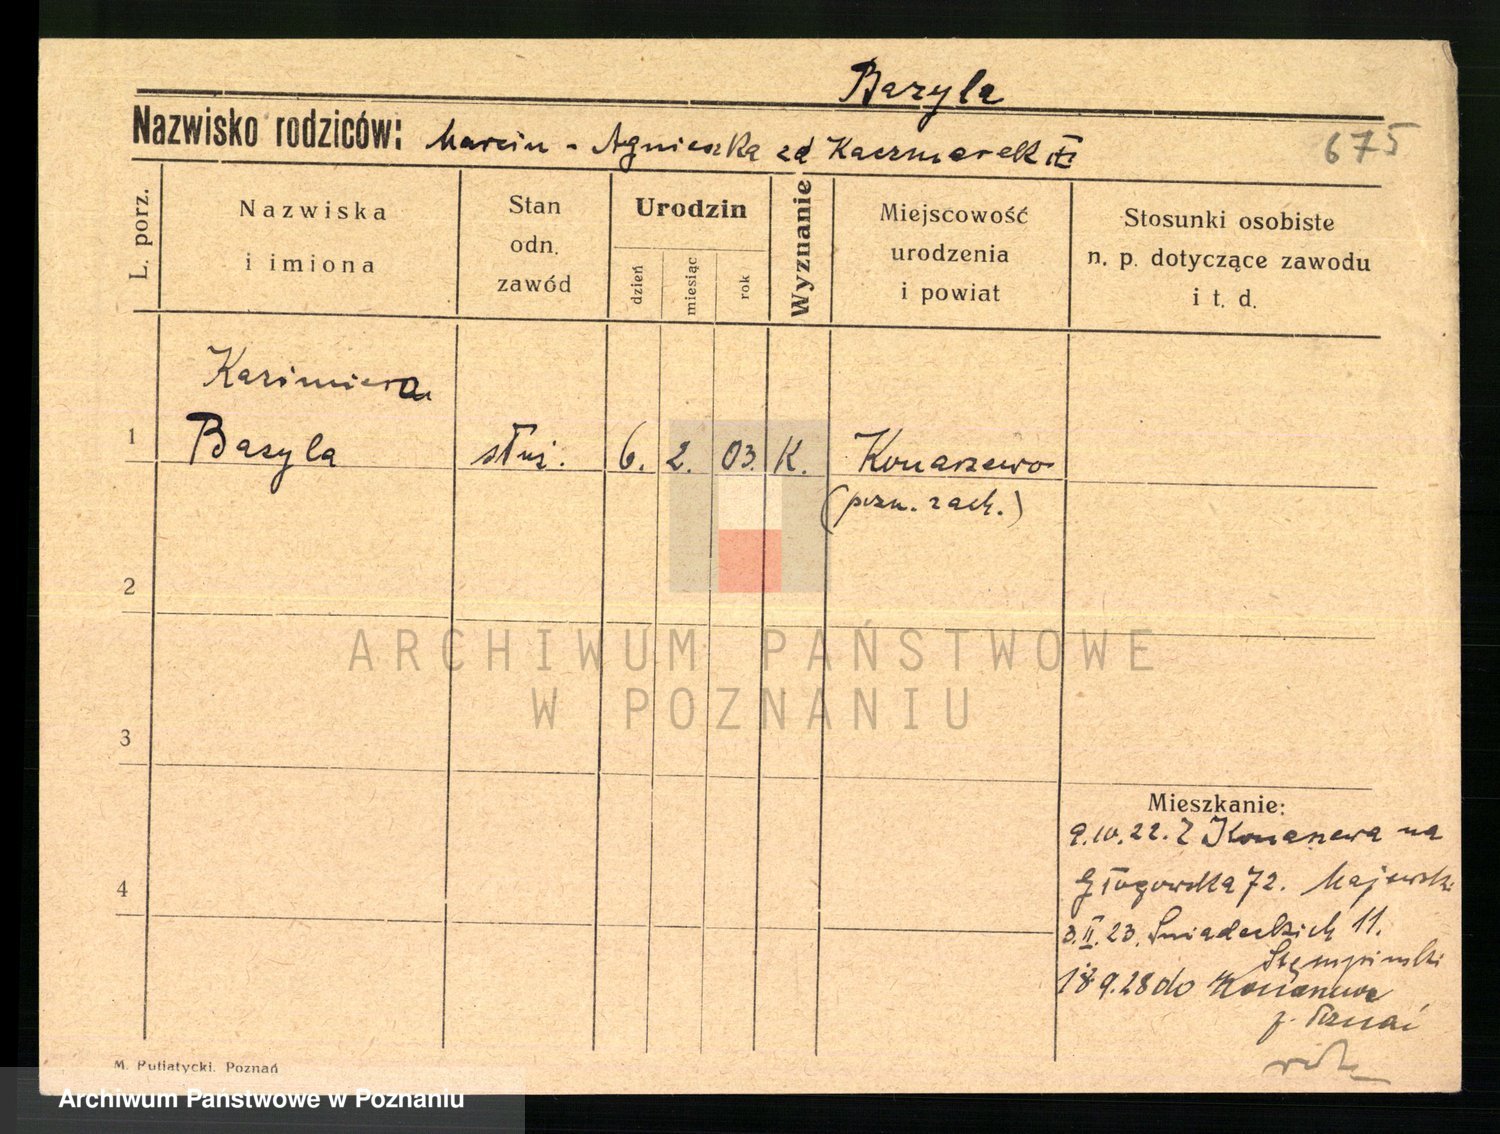 Bazyla
Nazwisko rodziców: Marcin - Agnieszka zd Kaczmarek
675
L. porz.
Nazwiska
i imiona
Stan
odn.
zawód
Urodzin
dzień
miesiąc
rok
Wyznanie
Miejscowość
urodzenia
i powiat
Stosunki osobiste
n. p. dotyczące zawodu
i t. d.
Kazimiera
1 Bazyla służ. 6. 2. 03. K. Konarzewo
(pozn. zach.)
2
ARCHIWUM PAŃSTWOWE
W POZNANIU
3
Mieszkanie:
9.10.22. Z Konarzewa na
4 Głogowska 72. Majewski
3.II.23. Śniadeckich 11.
Stempinski
18 9.28 do Konarzewa
p. Poznań
M. Putiatycki. Poznań
Archiwum Państwowe w Poznaniu